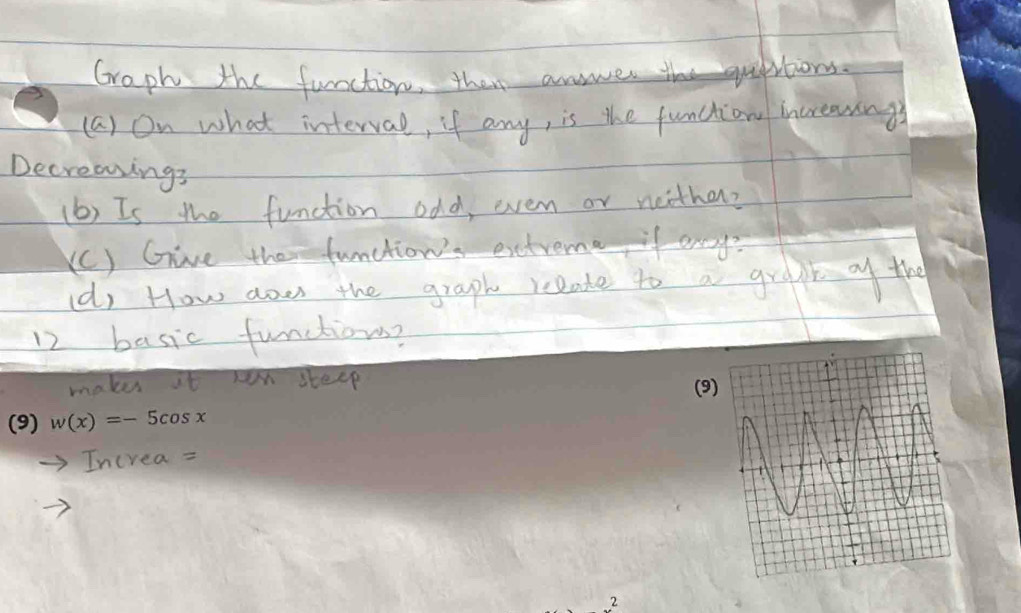 Graph the function, then answer the questions.
(a) On what interval, if any, is the function increasing?
Decreasing?
(b) Is the function odd, even or neither?
(c) Give the function's extrema, if any?
(d) How does the graph relate to a graph of the
12 basic functions?
makes it steep
(9)
(9) w(x) =- 5cos x
→ Increa =
→
2